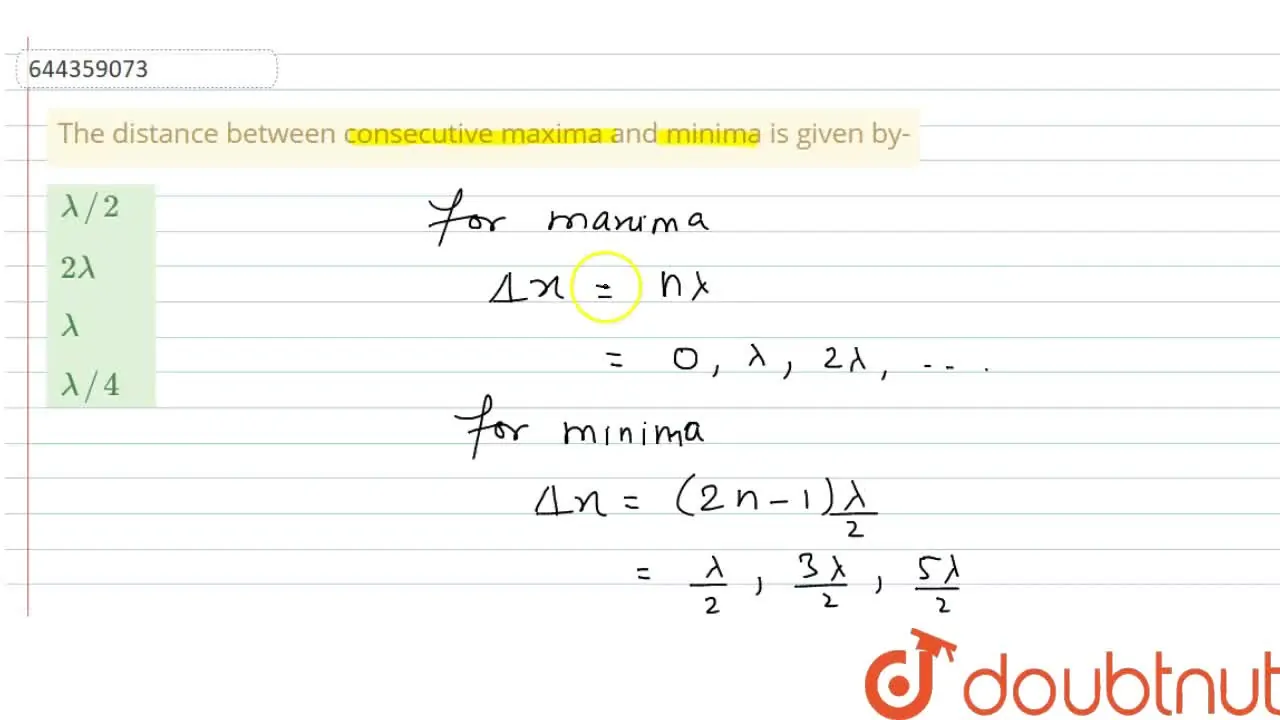 644359073
The distance between consecutive maxima and minima is given by-
λ/2
2λ
λ
λ/4
for maxima
Δx = nλ
= 0, λ, 2λ, -- .
for minima
Δx = (2n-1)λ/2
= λ/2, 3λ/2, 5λ/2
doubtnut